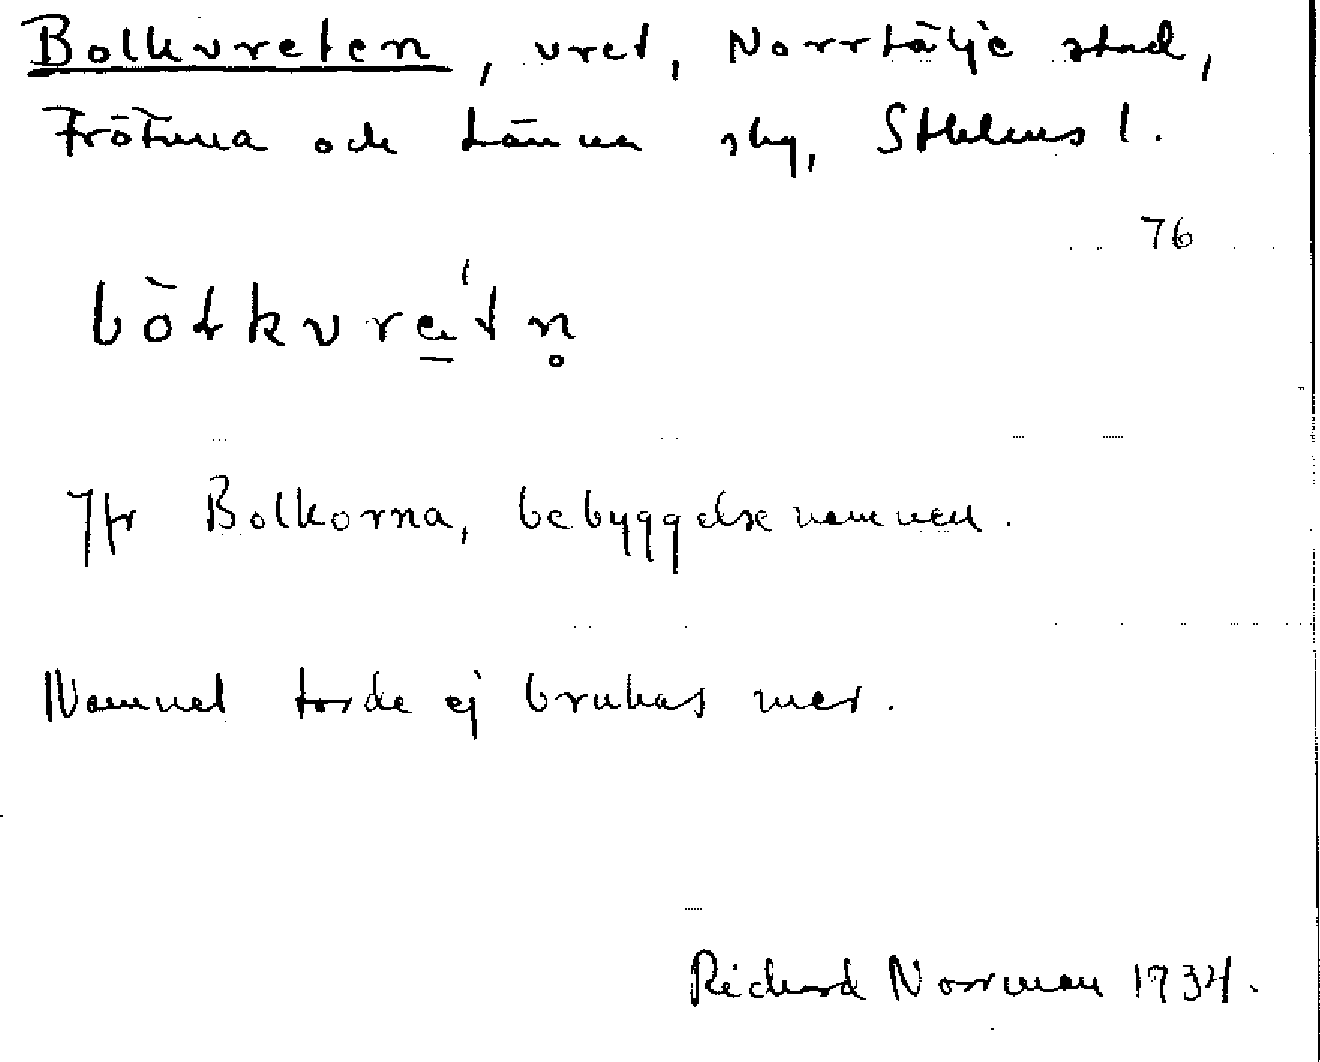 Bolkvreten, vret, Norrtälje stad,
Frötuna och Länna skg, Sthlms l.
76
Jfr Bolkorna, bebyggelsenamnen.
Namnet torde ej brukas mer.
Richard Norrman 1934.